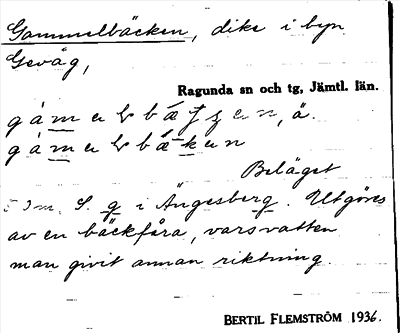 Gammelbäcken, dike i byn
Gevåg,
Ragunda sn och tg, Jämtl. län.
Beläget
S. g i Ängesberg. Utgöres
av en bäckfåra, vars vatten
man givit annan riktning.
BERTIL FLEMSTRÖM 1936.